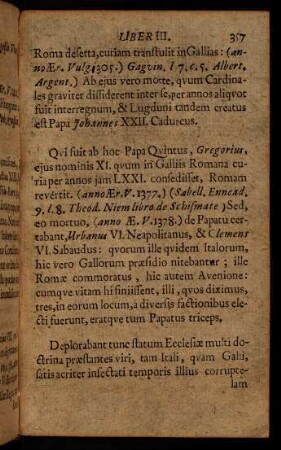 LIBER III. 357
Roma deserta, curiam transtulit in Gallias: (an-
no Ær. Vulg. 1305.) Gagvin. l. 7. c. 5. Albert.
Argent.) Ab ejus vero morte, qvum Cardina-
les graviter dissiderent inter se, per annos aliqvot
fuit interregnum, & Lugduni tandem creatus
est Papa Johannes XXII. Cadurcus.
Qvi fuit ab hoc Papa Qvintus, Gregorius,
ejus nominis XI. qvum in Galliis Romana cu-
ria per annos jam LXXI. consedisset, Romam
revertit. (anno Ær. V. 1377.) (Sabell. Ennead.
9. l. 8. Theod. Niem libro de Schismate) Sed,
eo mortuo, (anno Æ. V. 1378.) de Papatu cer-
tabant, Urbanus VI. Neapolitanus, & Clemens
VI. Sabaudus: qvorum ille qvidem Italorum,
hic vero Gallorum præsidio nitebantur; ille
Romæ commoratus, hic autem Avenione:
cumqve vitam hi finiissent, illi, qvos diximus,
tres, in eorum locum, a diversis factionibus ele-
cti fuerunt, eratqve tum Papatus triceps.
Deplorabant tunc statum Ecclesiæ multi do-
ctrina præstantes viri, tam Itali, qvam Galli,
satis acriter insectati temporis illius corrupte-
lam